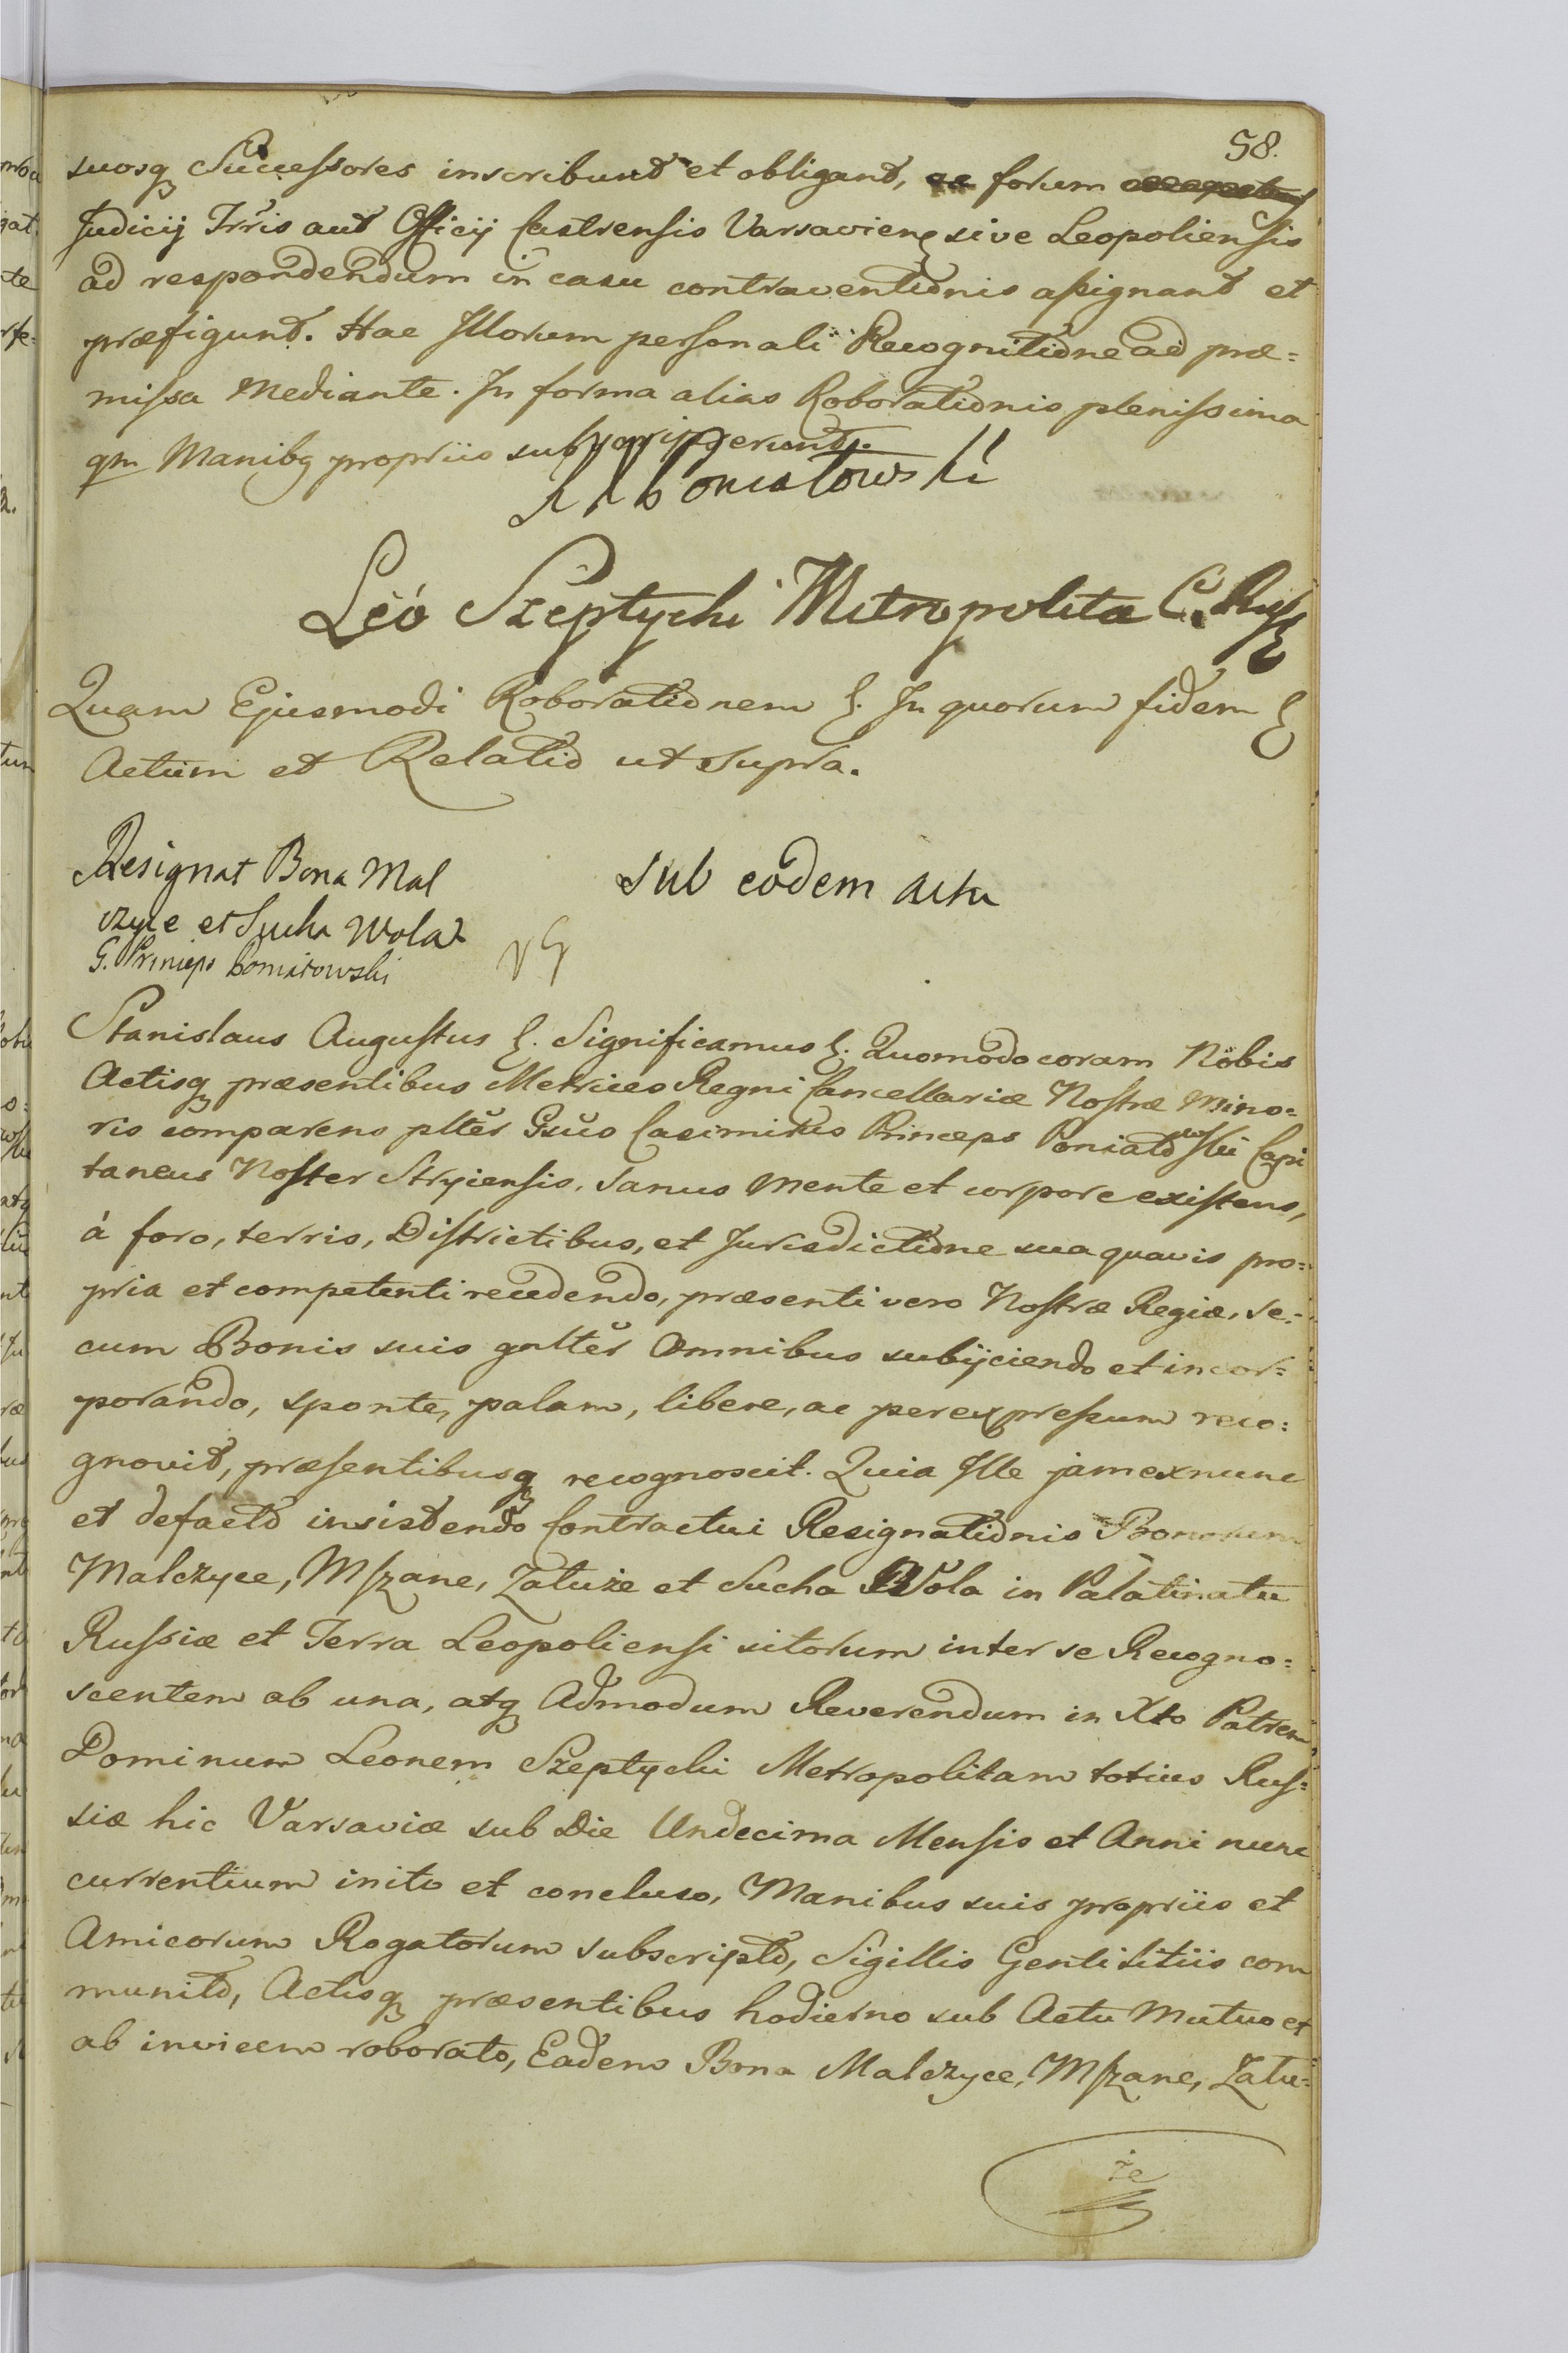 58.
suosq Successores inscribunt et obligant, ac forum
Judicij Trris aut Officij Castrensis Varsavien sive Leopoliensis
ad respondendum in casu contraventionis assignant et
præfigunt. Hac Illorum personali Recognitione ad præ=
missa Mediante. In forma alias Roborationis plenissima
qm Manibq propriis subscripserunt.
Poniatowski
Leo Szeptycki Metropolita C. Russ
Quam Ejusmodi Roborationem &. In quorum fidem &
Actum et Relatio ut supra.
Resignat Bona Mal
czyce et Sucha Wola
G. Princips Poniatowski
sub eodem actu
Stanislaus Augustus &. Significamus &. Quomodo coram Nobis
Actisq præsentibus Metrices Regni Cancellariæ Nostræ Mino=
ris comparens plter Gsus Casimirus Princeps Poniatowski Capi
taneus Noster Stryiensis, sanus mente et corpore existens,
à foro, terris, Districtibus, et Jurisdictione sua quavis pro=
pria et competenti recedendo, præsenti vero Nostræ Regiæ, se=
cum Bonis suis gnlter Omnibus subijciendo et incor=
porando, sponte, palam, libere, ac per expressum reco=
gnovit, præsentibusq recognoscit. Quia Ille jam exnunc
et defacto insistendo Contractui Resignationis Bonorum
Malczyce, Mszane, Zatuże et Sucha Wola in Palatinatu
Russiæ et Terra Leopoliensi sitorum inter se Recogno=
scentem ab una, atq Admodum Reverendum in Xto Patrem
Dominum Leonem Szeptycki Metropolitam totius Rus=
siæ hic Varsaviæ sub Die Undecima Mensis et Anni nunc
currentium inito et concluso, Manibus suis propriis et
Amicorum Rogatorum subscripto, Sigillis Gentilitiis com
munito, Actisq præsentibus hodierno sub Actu Mutuo et
ab invicem roborato, Eadem Bona Malczyce, Mszane, Zatu=
że